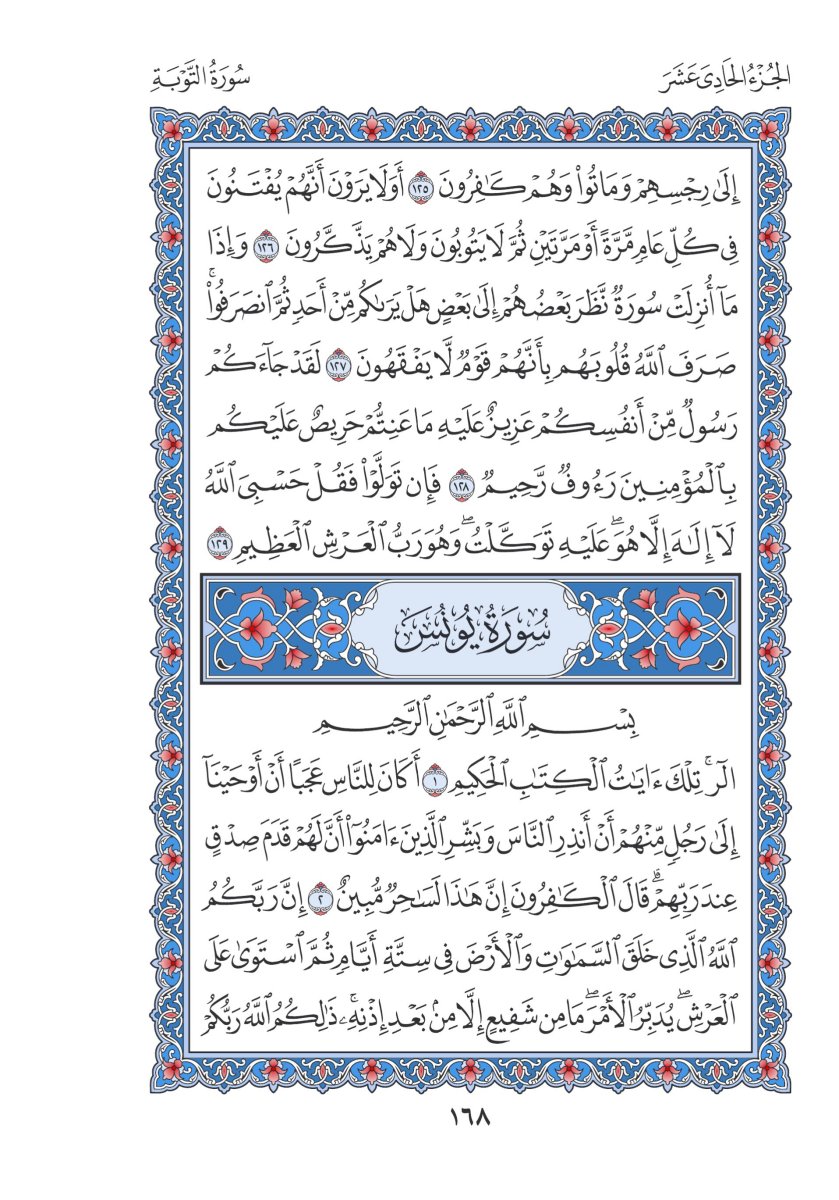 الجُزْءُ الحَادِىَ عَشَرَ
سُورَةُ التَّوْبَةِ
إِلَىٰ رِجْسِهِمْ وَمَاتُوا۟ وَهُمْ كَـٰفِرُونَ ١٢٥ أَوَلَا يَرَوْنَ أَنَّهُمْ يُفْتَنُونَ
فِى كُلِّ عَامٍ مَّرَّةً أَوْ مَرَّتَيْنِ ثُمَّ لَا يَتُوبُونَ وَلَا هُمْ يَذَّكَّرُونَ ١٢٦ وَإِذَا
مَآ أُنزِلَتْ سُورَةٌ نَّظَرَ بَعْضُهُمْ إِلَىٰ بَعْضٍ هَلْ يَرَىٰكُم مِّنْ أَحَدٍ ثُمَّ ٱنصَرَفُوا۟ ۚ
صَرَفَ ٱللَّهُ قُلُوبَهُم بِأَنَّهُمْ قَوْمٌ لَّا يَفْقَهُونَ ١٢٧ لَقَدْ جَآءَكُمْ
رَسُولٌ مِّنْ أَنفُسِكُمْ عَزِيزٌ عَلَيْهِ مَا عَنِتُّمْ حَرِيصٌ عَلَيْكُم
بِٱلْمُؤْمِنِينَ رَءُوفٌ رَّحِيمٌ ١٢٨ فَإِن تَوَلَّوْا۟ فَقُلْ حَسْبِىَ ٱللَّهُ
لَآ إِلَـٰهَ إِلَّا هُوَ ۖ عَلَيْهِ تَوَكَّلْتُ ۖ وَهُوَ رَبُّ ٱلْعَرْشِ ٱلْعَظِيمِ ١٢٩
سُورَةُ يُونُسَ
بِسْمِ ٱللَّهِ ٱلرَّحْمَـٰنِ ٱلرَّحِيمِ
الٓر ۚ تِلْكَ ءَايَـٰتُ ٱلْكِتَـٰبِ ٱلْحَكِيمِ ١ أَكَانَ لِلنَّاسِ عَجَبًا أَنْ أَوْحَيْنَآ
إِلَىٰ رَجُلٍ مِّنْهُمْ أَنْ أَنذِرِ ٱلنَّاسَ وَبَشِّرِ ٱلَّذِينَ ءَامَنُوٓا۟ أَنَّ لَهُمْ قَدَمَ صِدْقٍ
عِندَ رَبِّهِمْ ۗ قَالَ ٱلْكَـٰفِرُونَ إِنَّ هَـٰذَا لَسَـٰحِرٌ مُّبِينٌ ٢ إِنَّ رَبَّكُمُ
ٱللَّهُ ٱلَّذِى خَلَقَ ٱلسَّمَـٰوَٰتِ وَٱلْأَرْضَ فِى سِتَّةِ أَيَّامٍ ثُمَّ ٱسْتَوَىٰ عَلَى
ٱلْعَرْشِ ۖ يُدَبِّرُ ٱلْأَمْرَ ۖ مَا مِن شَفِيعٍ إِلَّا مِنۢ بَعْدِ إِذْنِهِۦ ۚ ذَٰلِكُمُ ٱللَّهُ رَبُّكُمْ
١٦٨